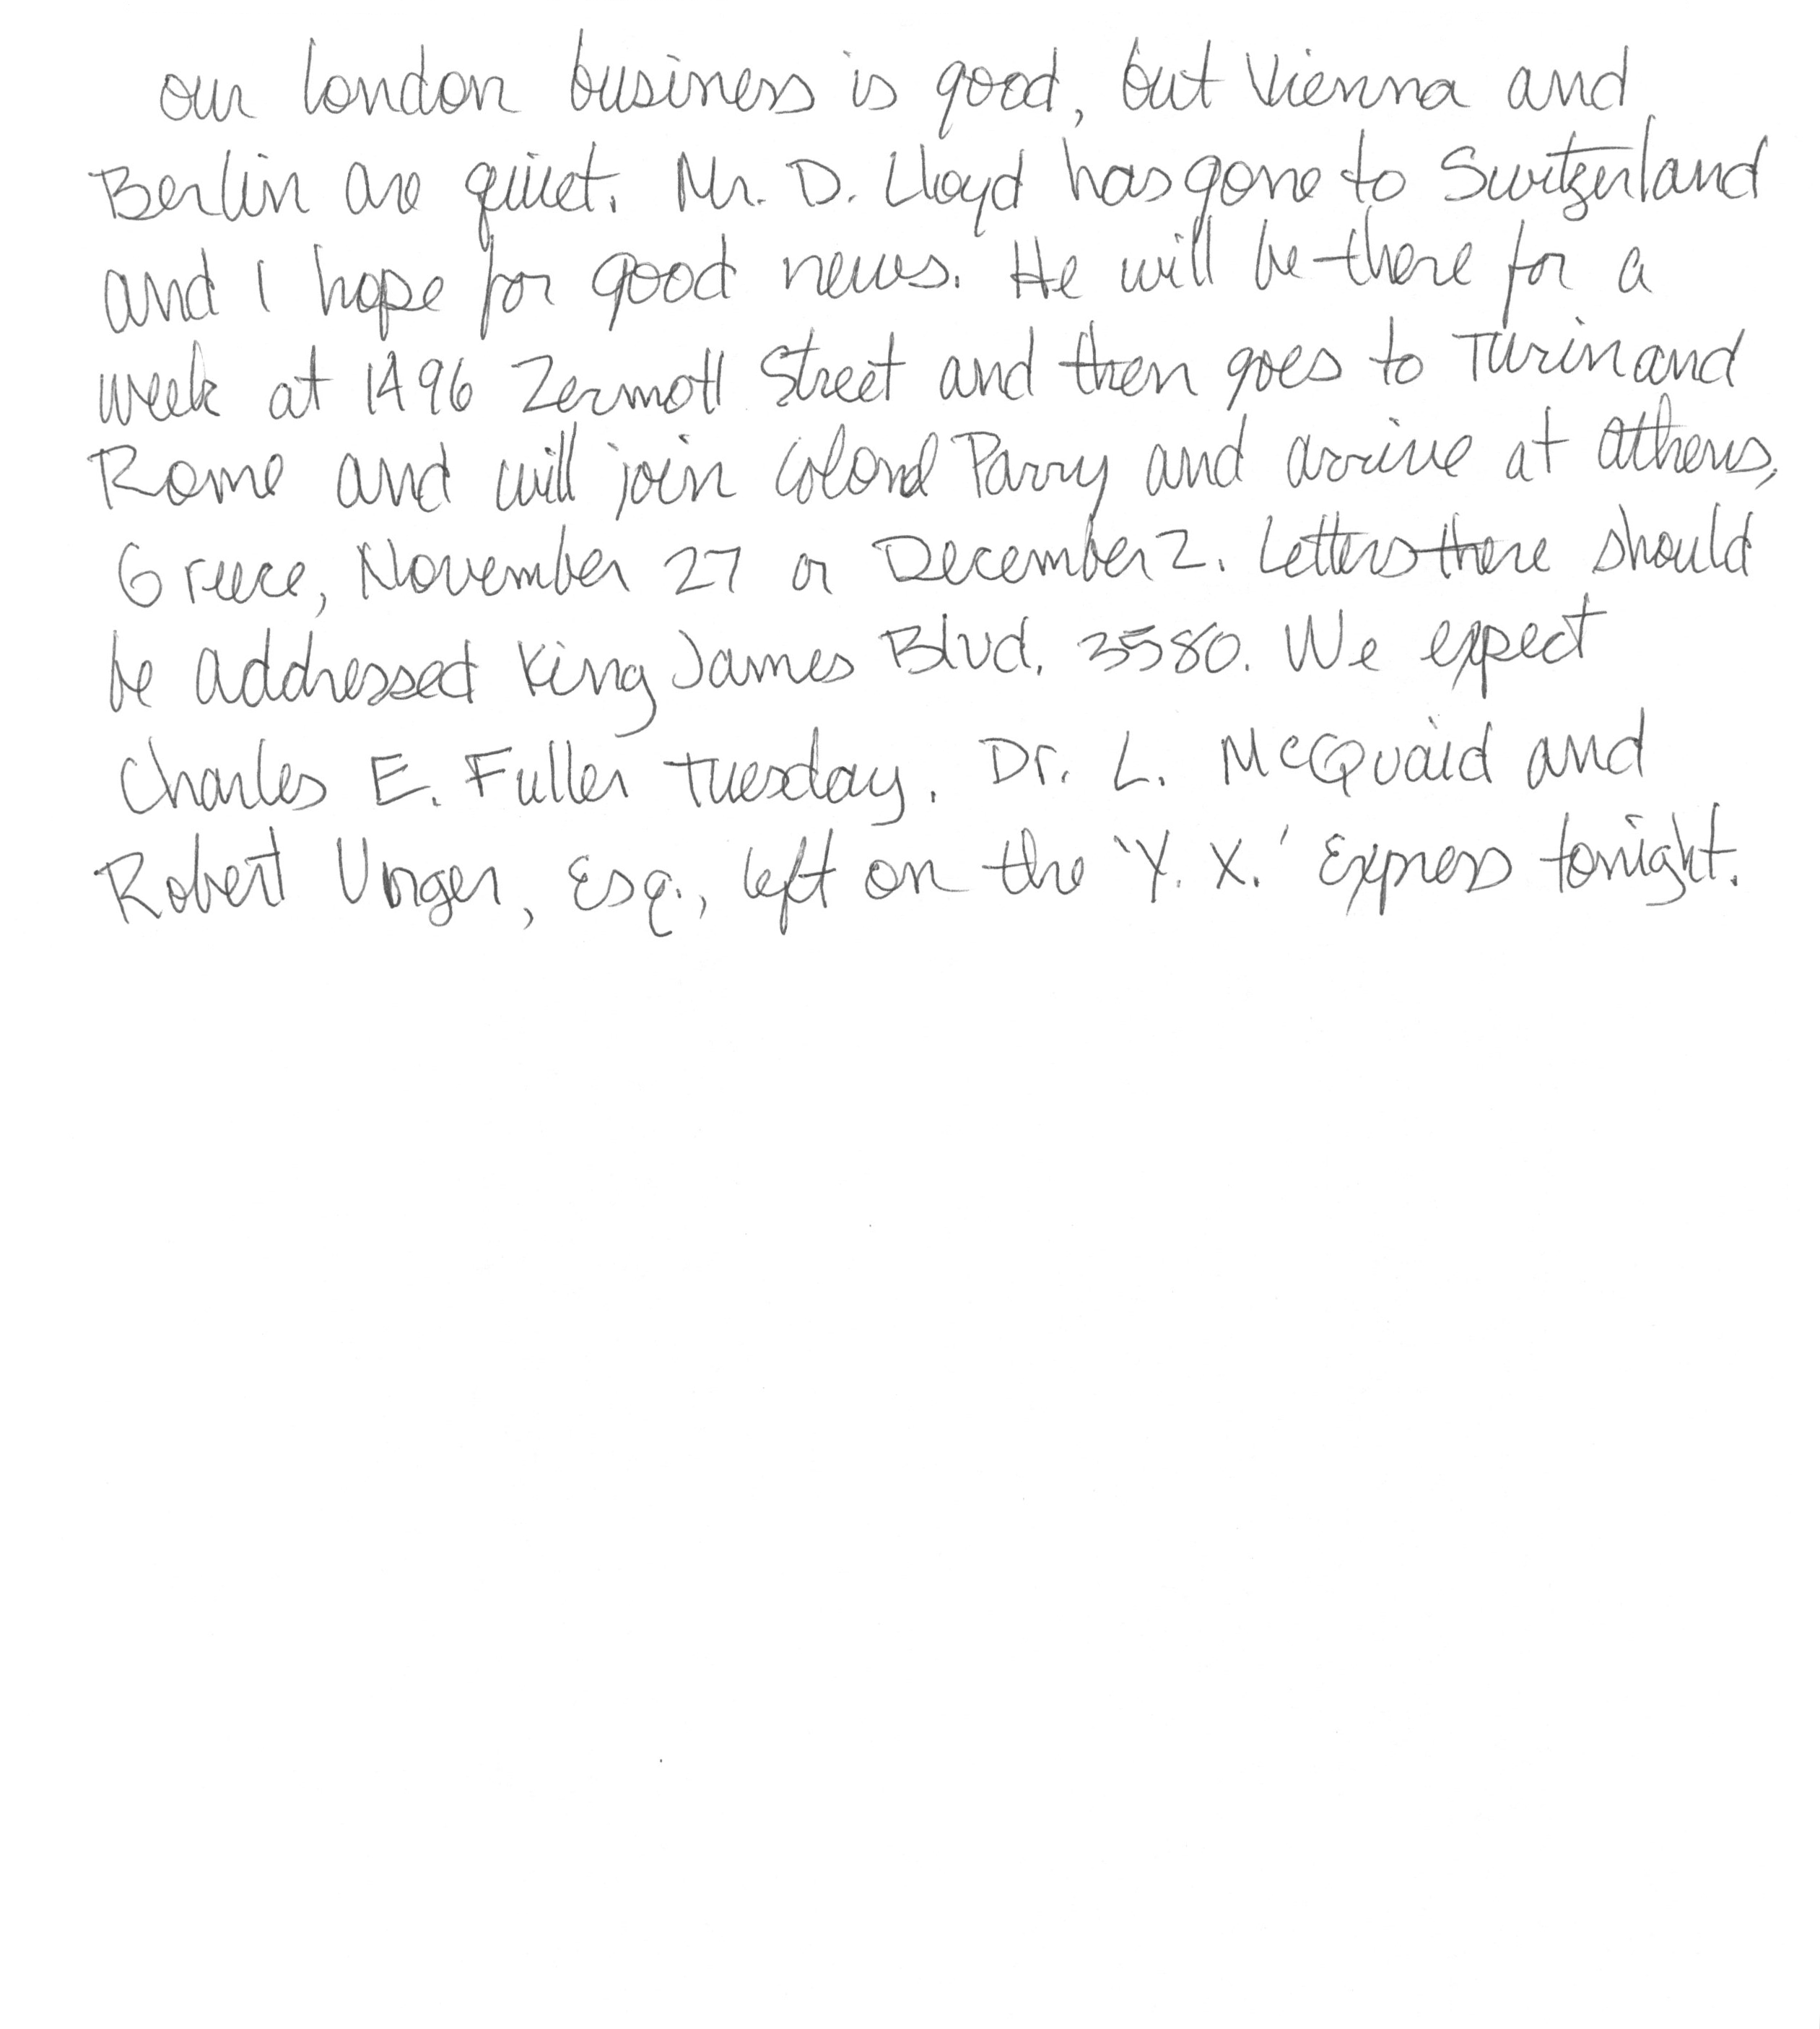 our london business is good, but Vienna and
Berlin are quiet. Mr. D. Lloyd has gone to Switzerland
and I hope for good news. He will be there for a
week at 1496 Zermott Street and then goes to Turin and
Rome and will join Colonel Parry and arrive at Athens,
Greece, November 27 or December 2. Letters there should
be addressed King James Blvd. 3580. We expect
Charles E. Fuller Tuesday. Dr. L. McQuaid and
Robert Unger, Esq., left on the 'Y. X.' Express tonight.